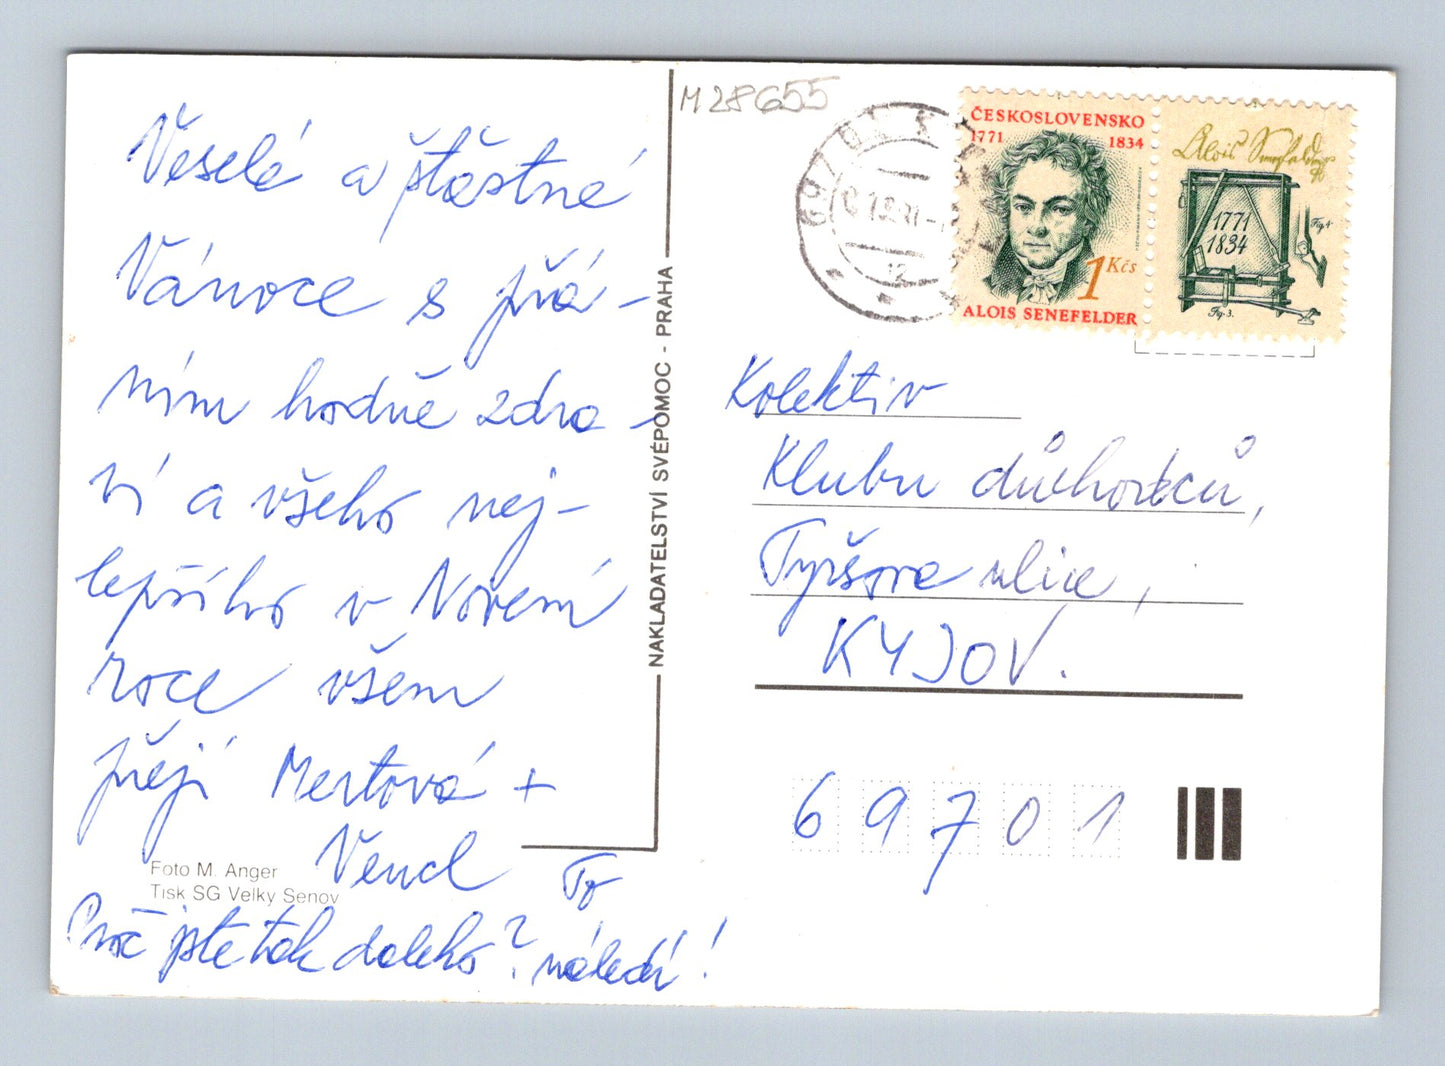 Veselé a štastné
Vánoce s přá-
ním hodně zdra-
ví a všeho nej-
lepšího v Novém
roce všem
přejí Mertová +
Vencl
Proč jste tak daleko?
náledí!
Foto M. Anger
Tisk SG Velky Senov
NAKLADATELSTVÍ SVÉPOMOC - PRAHA
M 28655
ČESKOSLOVENSKO
1771 1834
1 Kčs
ALOIS SENEFELDER
Alois Senefelder
1771
1834
Fig. 4.
Fig. 3.
Kolektiv
Klubu důchodců,
Tyršova ulice,
KYJOV.
69701